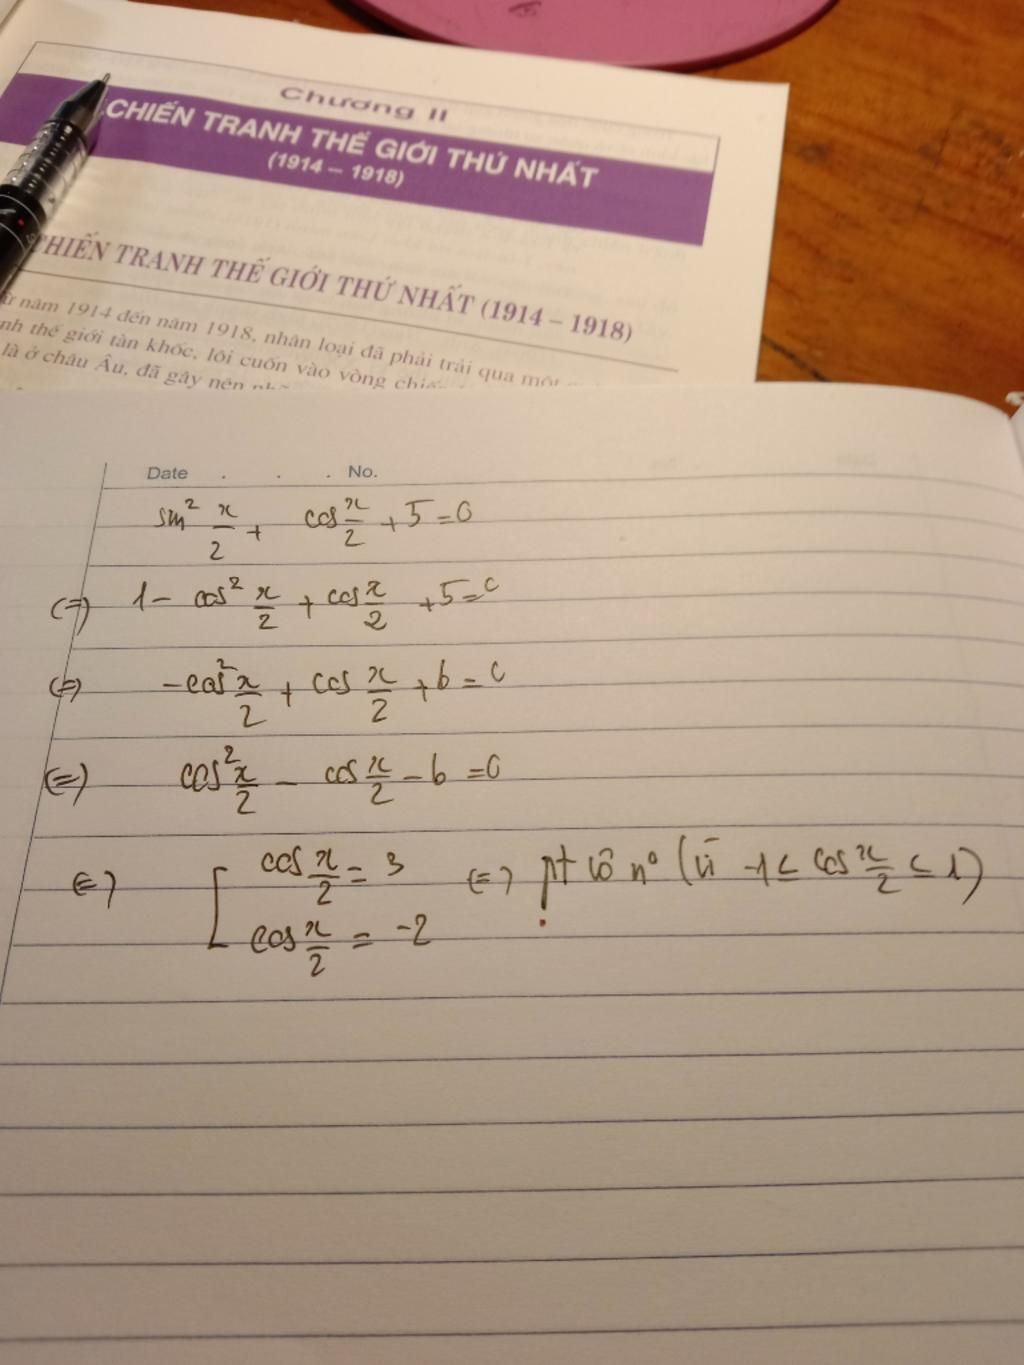 Chương II
CHIẾN TRANH THẾ GIỚI THỨ NHẤT
(1914 – 1918)
CHIẾN TRANH THẾ GIỚI THỨ NHẤT (1914 – 1918)
năm 1914 đến năm 1918, nhân loại đã phải trải qua một
thế giới tàn khốc, lôi cuốn vào vòng
là ở châu Âu, đã gây nên
Date . . . No.
sin² x/2 + cos x/2 + 5 = 0
(=) 1 - cos² x/2 + cos x/2 + 5 = 0
(=) -cos² x/2 + cos x/2 + 6 = 0
(=) cos² x/2 - cos x/2 - 6 = 0
(=) [ cos x/2 = 3 (=) pt vô nº (vì -1 ≤ cos x/2 ≤ 1)
cos x/2 = -2